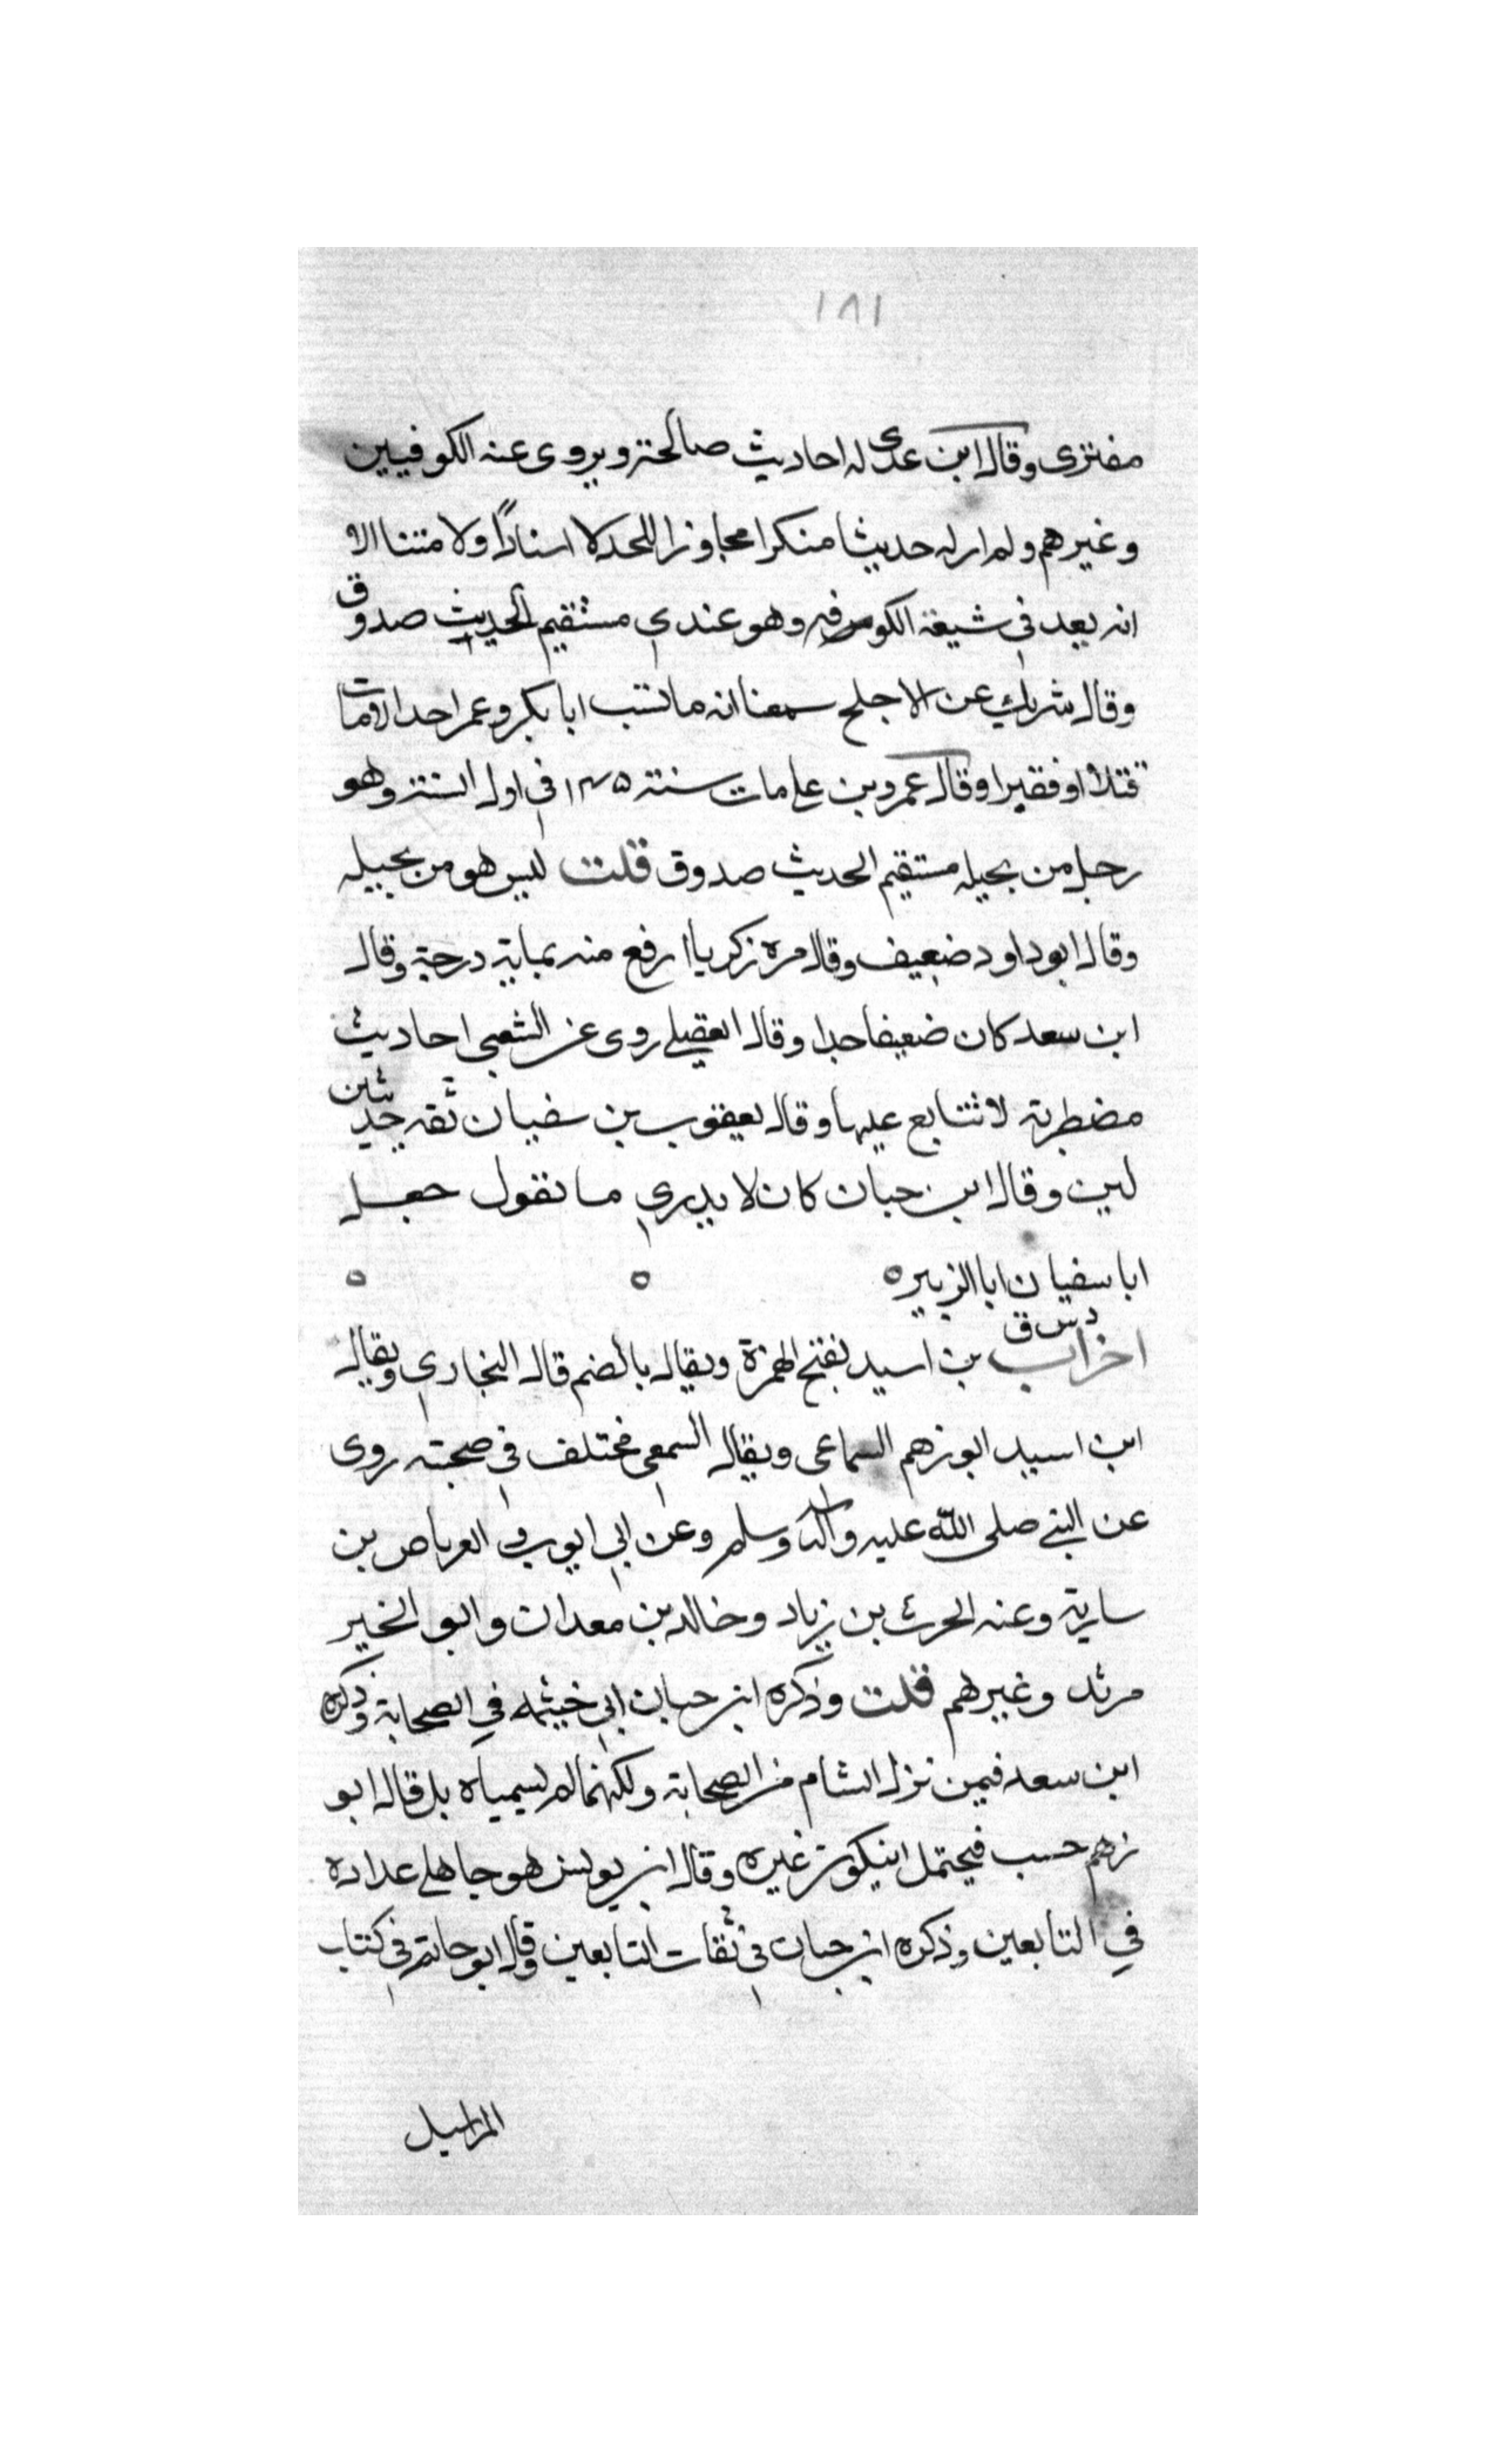 ١٨١
مفتزى وقال ابن عدى له احاديث صالحة ويروى عنه الكوفيين
وغيرهم ولم ار له حديثا منكرا مجاوزا للحد لا اسنادًا ولا متنا الا
انه يعد في شيعة الكوفه وهو عندي مستقيم الحديث صدوق
وقال شريك عن الاجلح سمعنا انه ما سب ابا بكر وعمر احد الا مات
قتلا او فقيرا وقال عمرو بن علي مات سنة ١٤٥ في اول السنة وهو
رجل من بجيله مستقيم الحديث صدوق قلت ليس هو من بجيله
وقال ابو داود ضعيف وقال مره زكريا ارفع منه بماية درجة وقال
ابن سعد كان ضعيفا جدا وقال العقيلي روى عن الشعبي احاديث
مضطربة لا تتابع عليها وقال يعقوب بن سفيان ثقه حديثه
لين وقال ابن حبان كان لا يدري ما تقول جعل
ابا سفيان ابا الزبير ه ه ه
د س ق
احزاب بن اسيد بفتح الهمزة ويقال بالضم قاله البخاري ويقال
ابن اسيد ابو زهم السماعى ويقال السمعى مختلف في صحبته روى
عن النبي صلى الله عليه وآله وسلم وعن ابي ايوب و العرباض بن
سارية وعنه الحرث بن زياد وخالد بن معدان وابو الخير
مرثد وغيرهم قلت وذكره ابن حبان ابي خيثمه في الصحابة وذكره
ابن سعد فيمن نزل الشام من الصحابة ولكنهما لم يسمياه بل قالا ابو
زهم حسب فيحتمل ان يكون غيره وقال ابن يونس هو جاهلي عداده
في التابعين وذكره ابن حبان في ثقات التابعين وقال ابو حاتم في كتاب
المراسيل